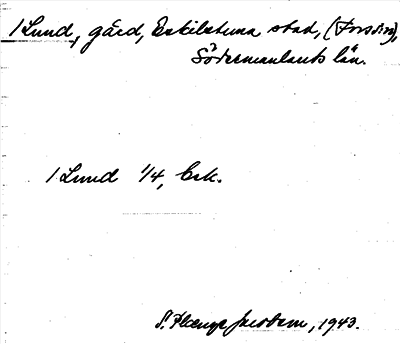 1 Lund, gård, Eskilstuna stad, (Fors sn),
Södermanlands län.
1 Lund 1/4, Esk.
S. Plænge Jacobson, 1943.